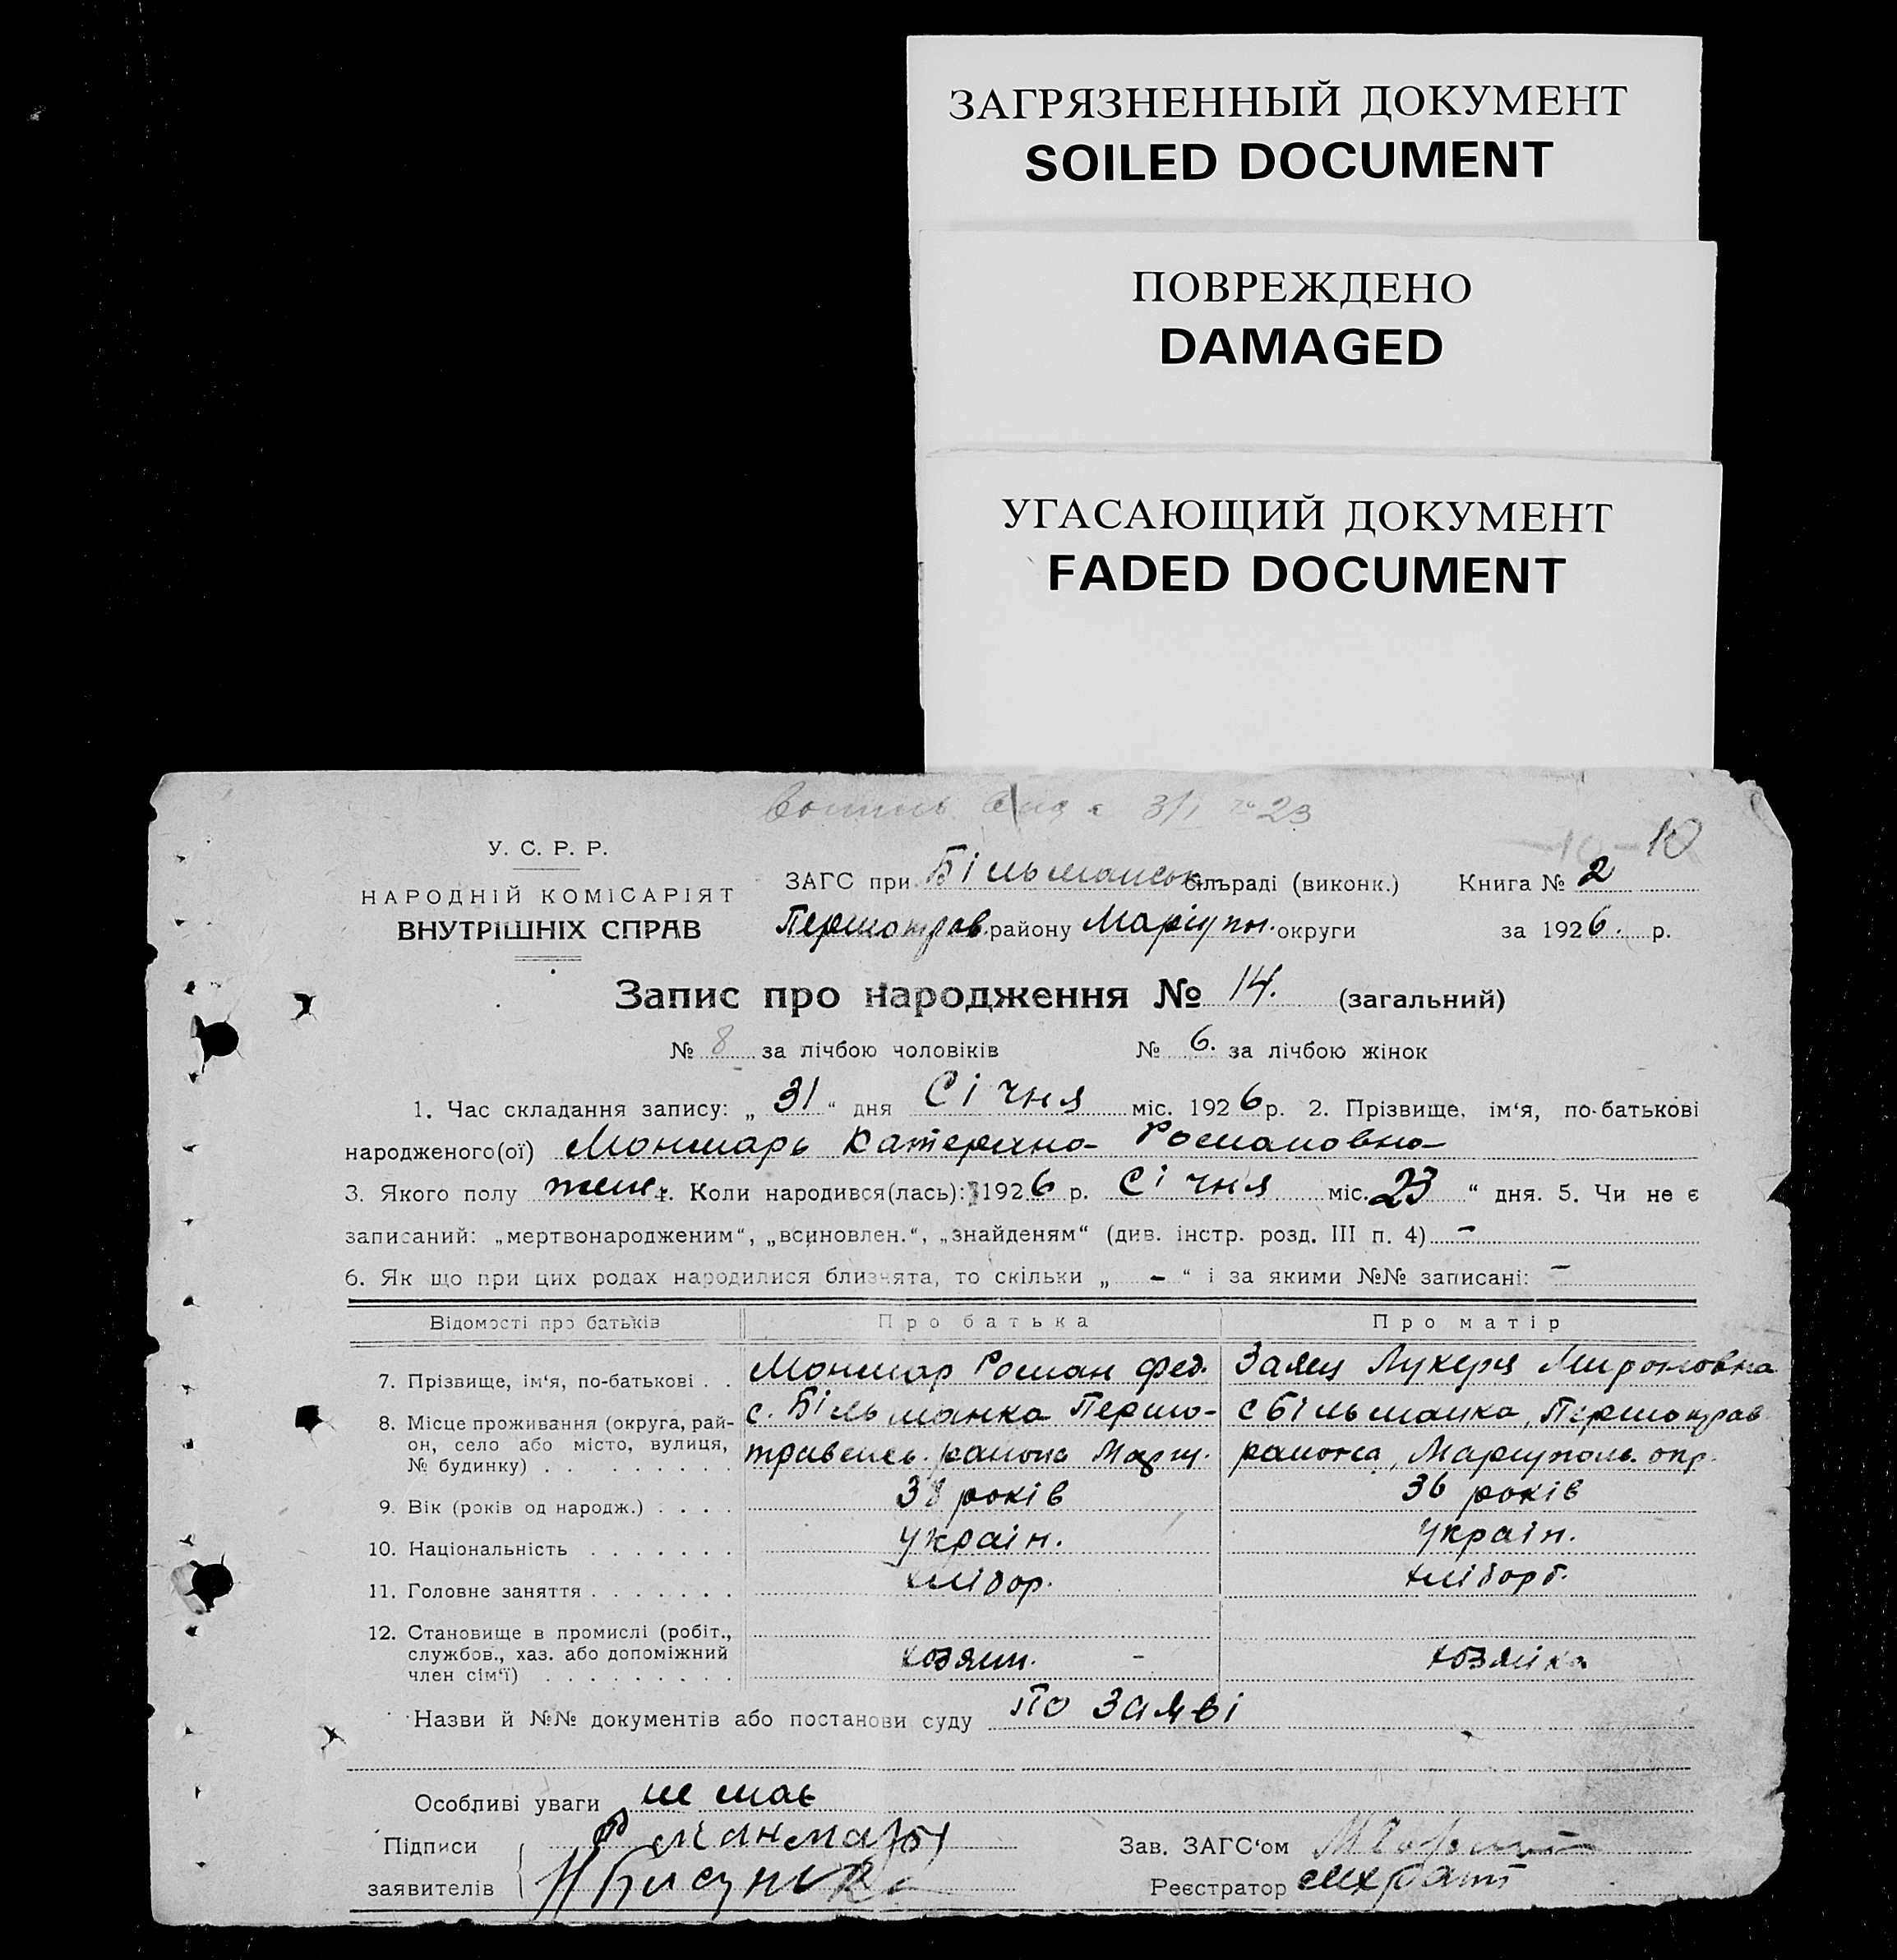 ЗАГРЯЗНЕННЫЙ ДОКУМЕНТ
SOILED DOCUMENT
ПОВРЕЖДЕНО
DAMAGED
УГАСАЮЩИЙ ДОКУМЕНТ
FADED DOCUMENT
3/I 23
10
У. С. Р. Р.
НАРОДНІЙ КОМІСАРІЯТ
ВНУТРІШНІХ СПРАВ
ЗАГС при Більманськ сільраді (виконк.) Книга № 2
Першотрав. району Маріуп. округи за 1926. р.
Запис про народження № 14. (загальний)
№ 8 за лічбою чоловіків № 6. за лічбою жінок
1. Час складання запису: „ 31 “ дня Січня міс. 1926 р. 2. Прізвище, ім‘я, по-батькові
народженого(ої) Моншарь Катерина Романовна
3. Якого полу жин. 4. Коли народився(лась): 1926 р. Січня міс. 23 “ дня. 5. Чи не є
записаний: „мертвонародженим“, „всиновлен.“, „знайденям“ (див. інстр. розд. III п. 4) -
6. Як що при цих родах народилися близнята, то скільки „ - “ і за якими №№ записані: -
Відомості про батьків Про батька Про матір
7. Прізвище, ім‘я, по-батькові . . Моншар Роман Фед. Заяц Лукеря Мироновна
8. Місце проживання (округа, рай- с. Більманка Першо- с Більманка, Першотрав
он, село або місто, вулиця,
№ будинку) . . . . . . . . травенсь. района Маріу. района, Мариуполь. окр.
9. Вік (років од народж.) . . . 38 років 36 років
10. Національність . . . . . . . україн. україн.
11. Головне заняття . . . . . . . хлібор. хлібороб.
12. Становище в промислі (робіт.,
службов., хаз. або допоміжний хозяин. - хозяйка
член сім‘ї) . . . . . . . . .
Назви й №№ документів або постанови суду По заяві
Особливі уваги не має
Підписи Зав. ЗАГС‘ом
заявителів Реєстратор